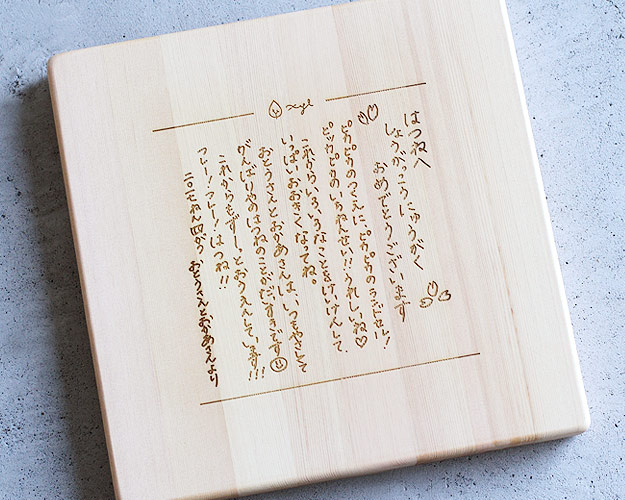 xyl
はつねへ
しょうがっこうにゅうがく
おめでとうございます
ピカピカのつくえに、ピカピカのランドセル!
ピッカピカのいちねんせい!!うれしいね♡
これからいろいろなことをけいけんして、
いっぱいおおきくなってね。
おとうさんとおかあさんは、いつもやさしくて
がんばりやのはつねのことがだいすきです
これからもずーっとおうえんしています!!!
フレー!フレー!はつね!!
二〇一七ねん四がつ おとうさんとおかあさんより